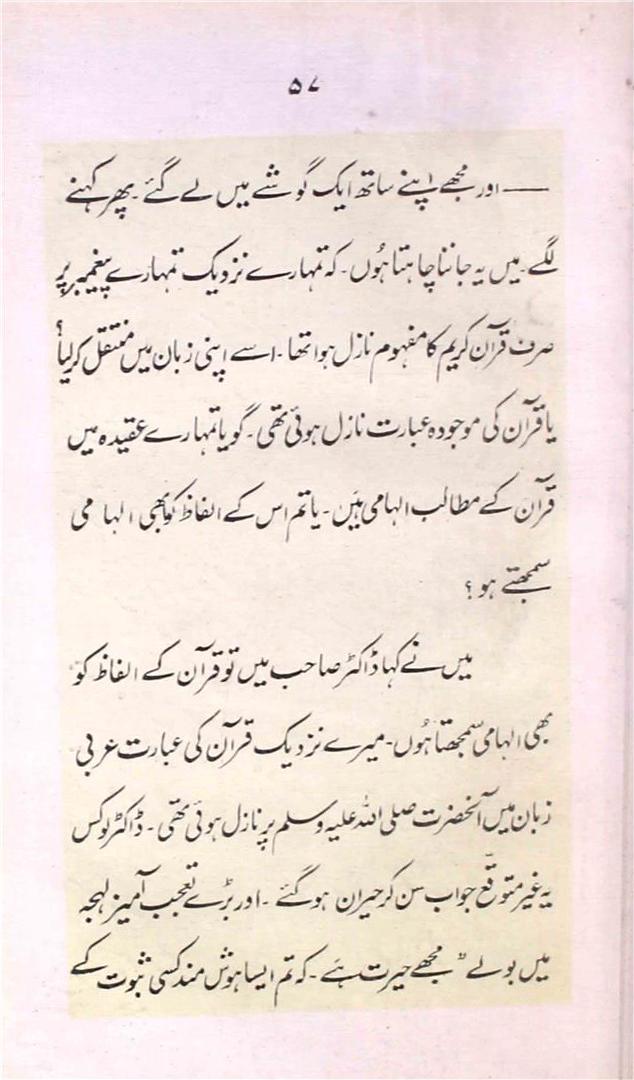 ۵۷
—— اور مجھے اپنے ساتھ ایک گوشے میں لے گئے۔ پھر کہنے
لگے۔ میں یہ جاننا چاہتا ہُوں۔ کہ تمہارے نزدیک تمہارے پیغمبر پر
صرف قرآن کریم کا مفہوم نازل ہوا تھا۔ اسے اپنی زبان میں منتقل کر لیا؟
یا قرآن کی موجودہ عبارت نازل ہوئی تھی۔ گویا تمہارے عقیدہ میں
قرآن کے مطالب الہامی ہیں۔ یا تم اس کے الفاظ کو بھی الہامی
سمجھتے ہو؟
میں نے کہا ڈاکٹر صاحب میں تو قرآن کے الفاظ کو
بھی الہامی سمجھتا ہُوں۔ میرے نزدیک قرآن کی عبارت عربی
زبان میں آنحضرت صلی اللہ علیہ وسلم پر نازل ہوئی تھی۔ ڈاکٹر لوکس
یہ غیر متوقع جواب سن کر حیران ہو گئے۔ اور بڑے تعجب آمیز لہجہ
میں بولے ” مجھے حیرت ہے۔ کہ تم ایسا ہوش مند کسی ثبوت کے